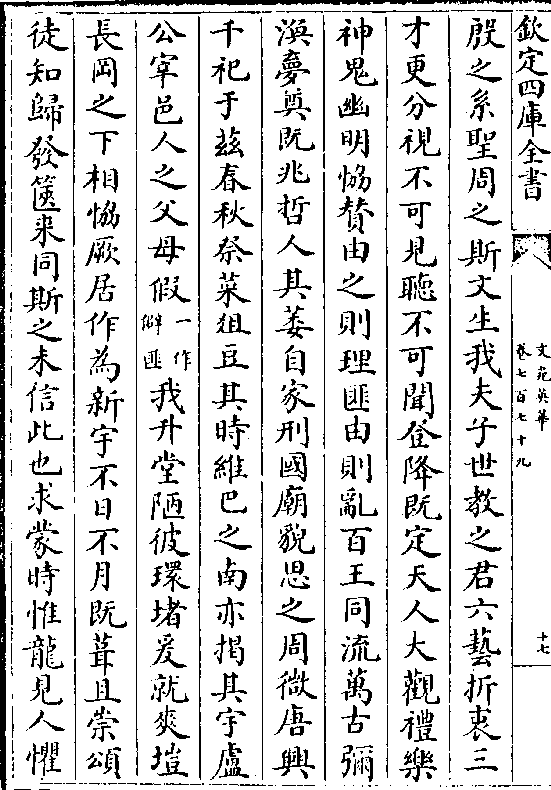 欽定四庫全書
文苑英華
卷七百七十九
十七
殷之系聖周之斯文生我夫子世教之君六藝折衷三
才更分視不可見聽不可聞登降既定天人大觀禮樂
神鬼幽明恊賛由之則理匪由則亂百王同流萬古彌
渙夢奠既兆哲人其萎自家刑國廟貌思之周微唐興
千祀于兹春秋祭菜俎豆其時維巴之南亦掲其宇盧
公宰邑人之父母假一作僻匪我升堂陋彼環堵爰就爽塏
長岡之下相恊厥居作為新宇不日不月既葺且崇頌
徒知歸發篋来同斯之未信此也求蒙時惟龍見人懼